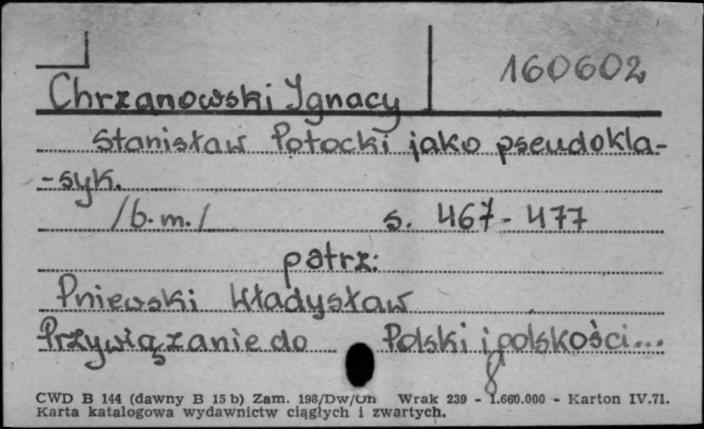 160602
Chrzanowski Ignacy
Stanisław Potocki jako pseudokla-
-syk.
/b.m./ s. 467-477
patrz:
Pniewski Władysław
Przywiązanie do Polski i polskości...
8
CWD B 144 (dawny B 15 b) Zam. 198/Dw/Un Wrak 239 - 1.660.000 - Karton IV.71.
Karta katalogowa wydawnictw ciągłych i zwartych.